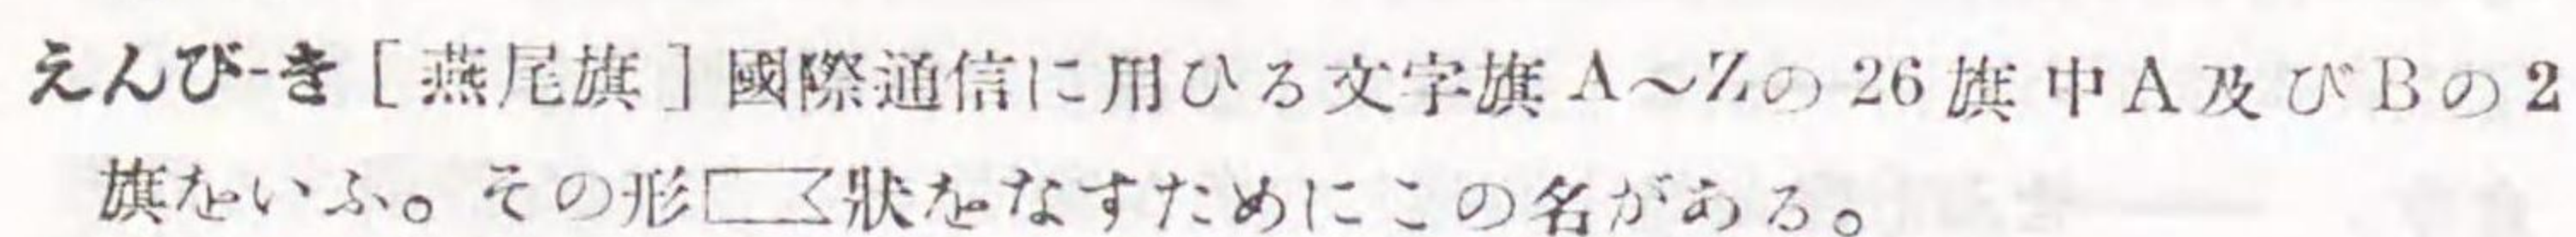 えんび-き［燕尾旗］國際通信に用ひる文字旗A～Zの26旗中A及びBの2
旗をいふ。その形狀をなすためにこの名がある。